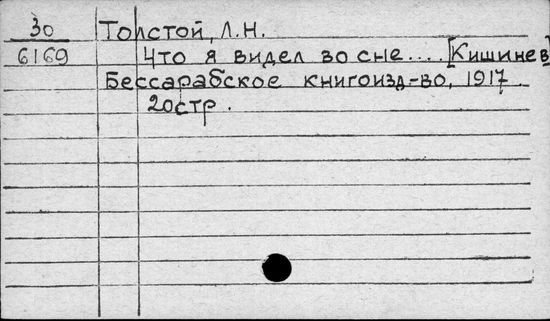 30 Толстой, Л.Н.
6169 Что я видел во сне.... [Кишинев]
Бессарабское книгоизд-во, 1917
20стр.